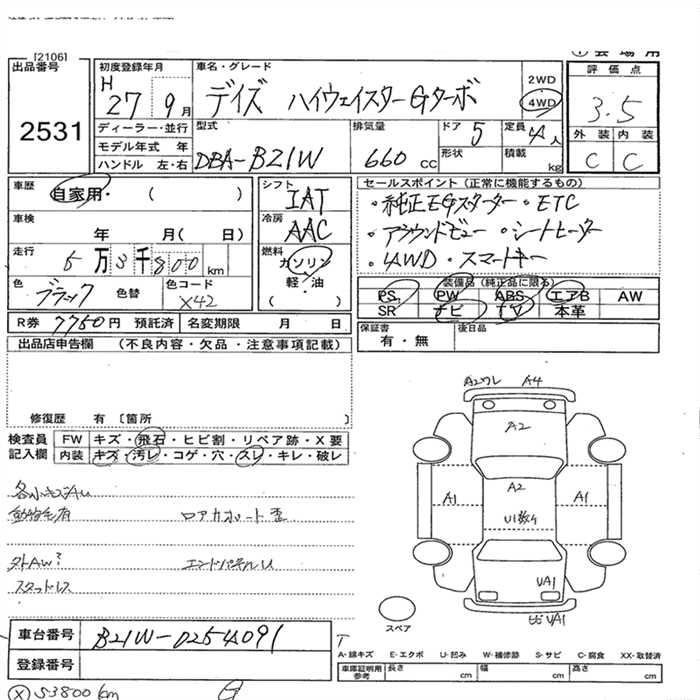 [2106]
出品番号
2531
初度登録年月
H 27 9月
ディーラー・並行
モデル年式 年
ハンドル 左・右
車名・グレード
デイズ ハイウェイスターGターボ
2WD
4WD
型式
DBA-B21W
排気量
660 CC
ドア 5
形状
定員 4人
積載 kg
評価点
3.5
外装 内装
C C
車歴
自家用・( )
車検
年 月( 日)
走行
5万3千800km
色
ブラック 色替
色コード
X42
シフト
IAT
冷房
AAC
燃料
ガソリン
軽・油
( )
R券 7750円 預託済 名変期限 月 日
セールスポイント(正常に機能するもの)
・純正EGスターター ・ETC
・アラウンドビュー ・シートヒーター
・4WD ・スマートキー
装備品(純正品に限る)
PS PW ABS エアB AW
SR ナビ TV 本革
保証書
有・無
後日品
出品店申告欄 (不良内容・欠品・注意事項記載)
修復歴 有 〔箇所 〕
検査員
記入欄
FW キズ・飛石・ヒビ割・リペア跡・X要
内装 キズ・汚レ・コゲ・穴・スレ・キレ・破レ
各小キズAU
動物毛有 ロアサポート歪
外AW? エンドパネルU
スタッドレス
A2ワレ A4
A2
A2
A1 A1
U1数ケ
UA1
UA1
スペア
車台番号 B21W-0254091
登録番号
A-線キズ E-エクボ U-凹み W-補修跡 S-サビ C-腐食 XX-取替済
車庫証明用
参考
長さ cm 幅 cm 高さ cm
53800km